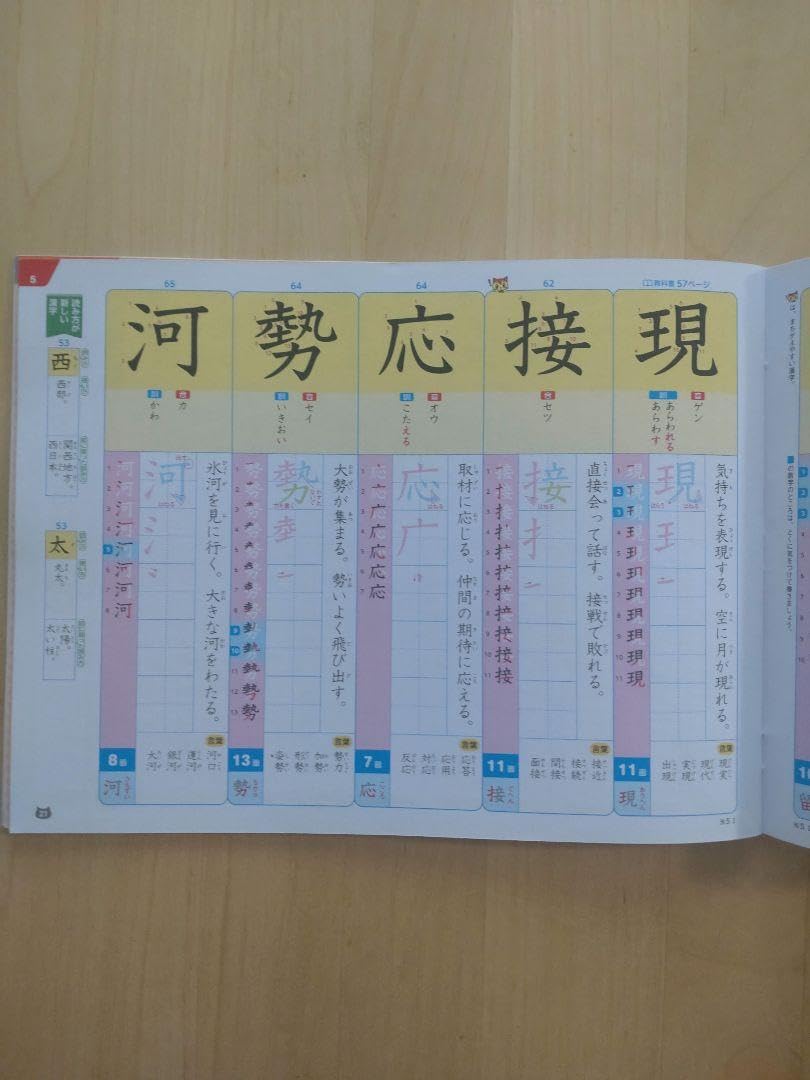 教科書 57ページ
現
音 ゲン
訓 あらわれる
あらわす
気持ちを表現する。空に月が現れる。
言葉
現実
現代
実現
出現
11画
現
おうへん
62
接
音 セツ
直接会って話す。接戦で敗れる。
言葉
接近
接続
間接
面接
11画
接
てへん
64
応
音 オウ
訓 こたえる
取材に応じる。仲間の期待に応える。
言葉
応答
応用
対応
反応
7画
応
こころ
64
勢
音 セイ
訓 いきおい
大勢が集まる。勢いよく飛び出す。
言葉
勢力
加勢
形勢
姿勢
13画
勢
ちから
65
河
音 カ
訓 かわ
氷河を見に行く。大きな河をわたる。
言葉
河口
運河
銀河
大河
8画
河
さんずい
5
読み方が
新しい
漢字
53
西
西部。
関西地方
西日本。
53
太
丸太。
太陽。
太い柱。
21
は、まちがえやすい漢字。
の数字のところは、とくに気をつけて書きましょう。